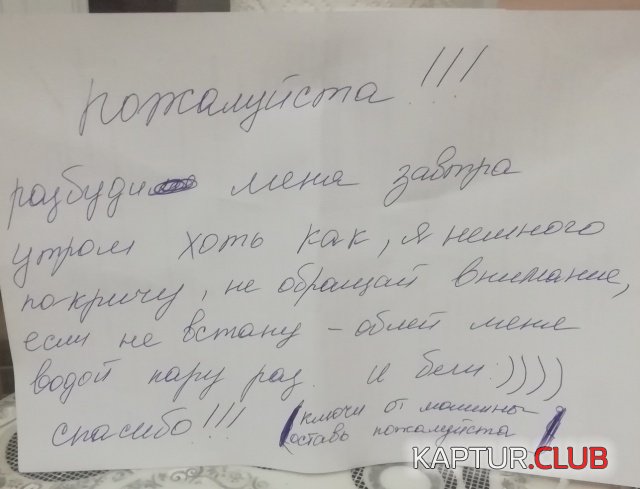 пожалуйста !!!
разбуди меня завтра
утром хоть как, я немного
покричу, не обращай внимание,
если не встану – облей меня
водой пару раз. и беги :))))
спасибо!!! (ключи от машины
оставь пожалуйста)
KAPTUR.CLUB